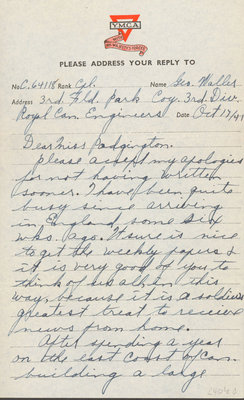 YMCA
PLEASE ADDRESS YOUR REPLY TO
No C.64118 Rank Cpl. Name Geo. Waller
Address 3rd. Fld. Park Coy. 3rd. Div.
Royl Can. Engineers Date Oct 17/41
Dear Miss Padgington.
Please accept my apologies
for not having written
sooner. I have been quite
busy since arriving
in England some six
wks. ago. It sure is nice
to get the weekly papers &
it is very good of you to
think of us all in this
way, because it is a soldiers
greatest treat to receive
news from home.
After spending a year
on the east coast of Can.
building a large